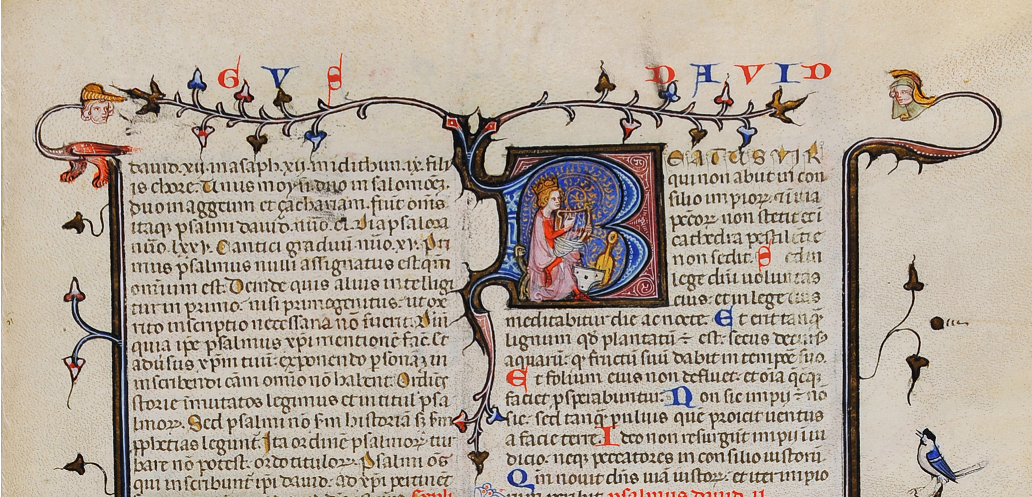 G V S
DAVID
david. xii. in asaph. xii. in idithun. ix. filiis chore.
duo in aggeum et zachariam. fiūt om̄s
itaq psalmi dauid. nūo. cl. Dia psalma
nūo. lxxv. Cantici graduū nūo. xv. Pri
mus psalmus nulli assignatus est. qm̄
omnium est. Deinde quis alius intelligi
tur in primo. nisi primogenitus. ut
rito inscriptio necessaria nō fuerit.
quia ipe psalmus xp̄i mentionē fac̄. et
aduersus xp̄m tuū. exponendo personā. in
inscribendi cām om̄io nō habent. Ordinē
storie īmutatos legimus et in titul' psa
lmor. Sed psalmi nō s̄m historiā s̄
pph̄etias legunt. Ita ordinē psalmor tur
bare nō potest. ordo titulor. Psalmi om̄s
qui inscribunt ipi dauid. ad xp̄i pertinet
BEATUS VIR
qui non abiit in con
silio impior. et ī uia
peccor. non stetit et ī
cathedra pestilētie
non sedit. Sed in
lege dn̄i voluntas
eius. et in lege eius
meditabitur die ac nocte. Et erit tanq̄
lignum qd̄ plantatū est. secus decurs
aquarū. q̄ fructū suū dabit in tempore suo.
Et folium eius non defluet. et oīa q̄cq
faciet prosperabuntur. Non sic impii nō
sic. sed tanq̄ puluis que proicit uentus
a facie terre. Ideo non resurgūt impii ī iu
dicio. neq peccatores in consilio iustorū.
Qm̄ nouit dn̄s uiā iustor. et iter impio
rum peribit psalmus dauid. II.